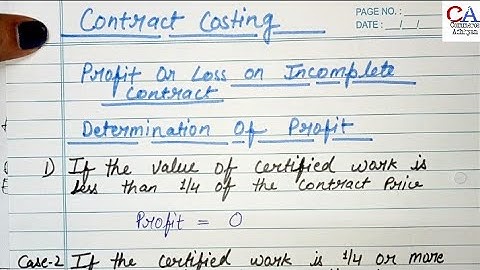 Contract Costing
PAGE NO. :
DATE : / /
CA
Commerce
Adhiyan
Profit Or Loss on Incomplete
Contract
Determination Of Profit
1) If the value of certified work is
less than 1/4 of the Contract Price
Profit = 0
Case-2 If the certified work is 1/4 or more